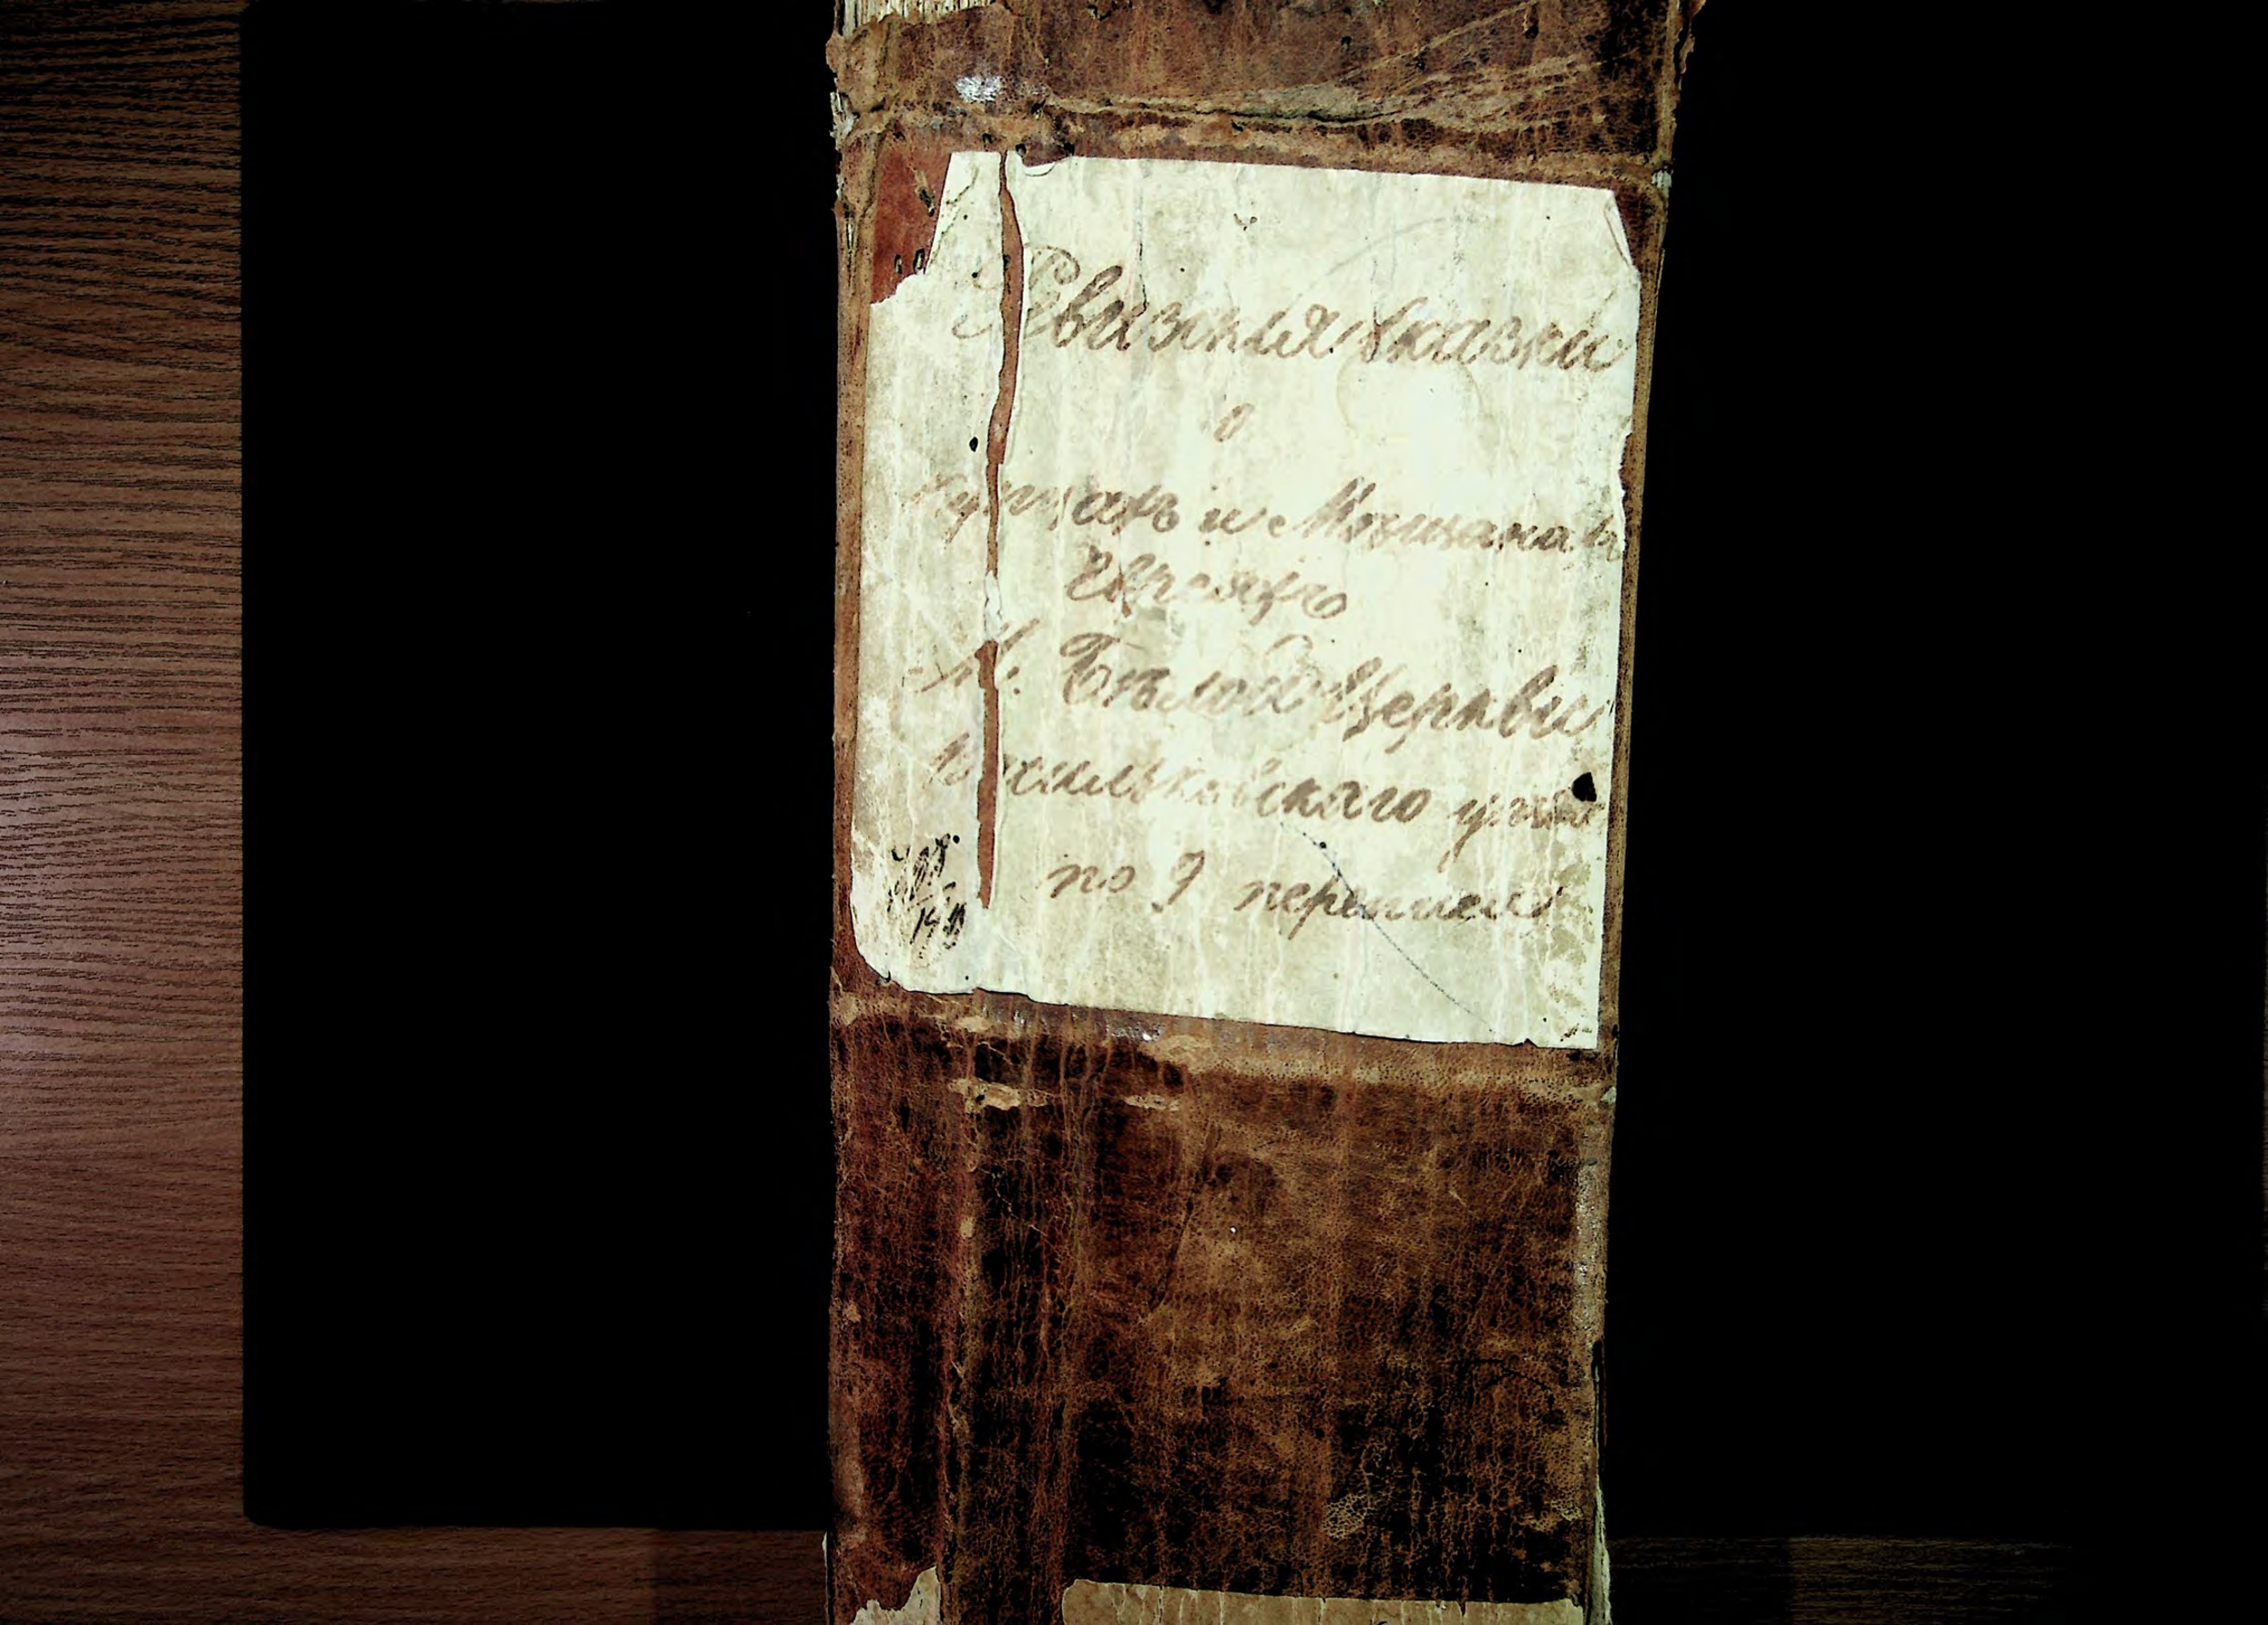 Ревизкія сказки
о
купцахъ и Мѣщанахъ
Евреяхъ
М. Бѣлой Церкви
Васильковскаго уѣзда
по 9 переписи